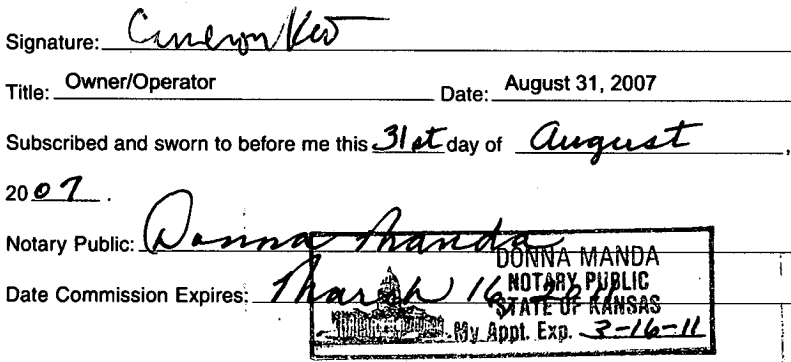 Signature: Cameron
Title: Owner/Operator Date: August 31, 2007
Subscribed and sworn to before me this 31st day of August,
2007.
Notary Public: Donna Manda
Date Commission Expires: March 16, 2011
DONNA MANDA
NOTARY PUBLIC
STATE OF KANSAS
My Appt. Exp. 3-16-11